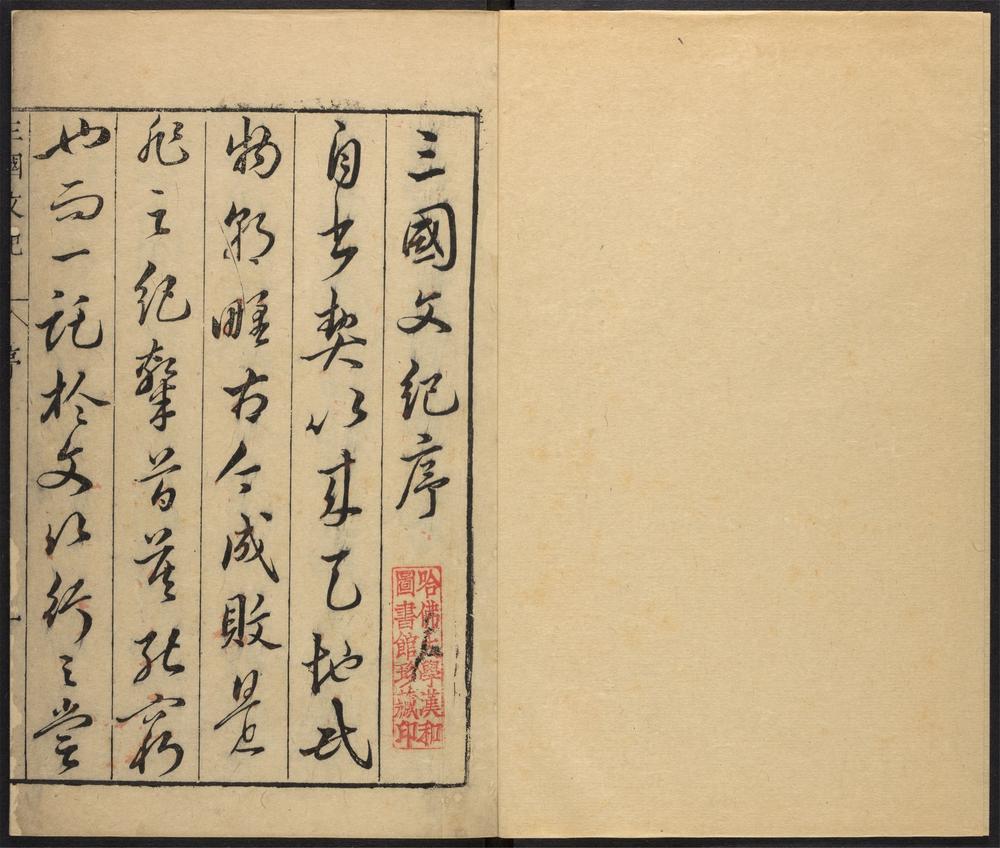 三國文紀序
哈佛大學漢和
圖書館珍藏印
自書契以来天地民
物古今成敗是
非之紀莫能窮
也而一託於文以行之嘗
三國文紀 序 一